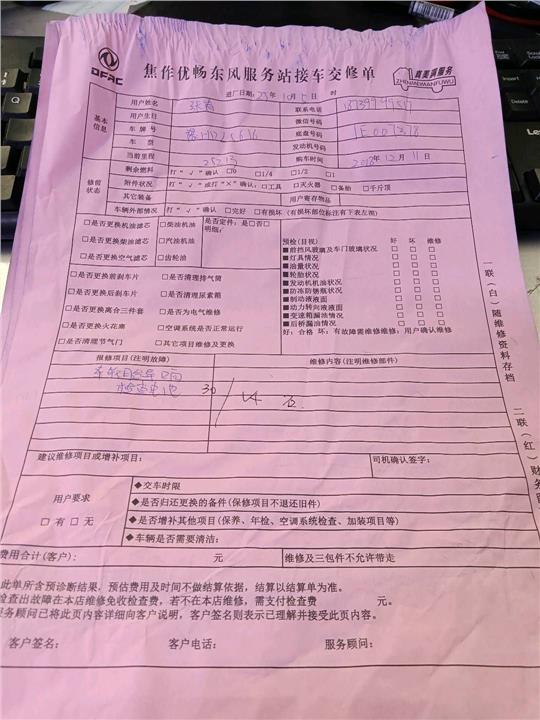 DFAC
焦作优畅东风服务站接车交修单
真美满服务
ZHENMEIMANFUWU
进厂日期: 年 10月 日 时
基本信息
用户姓名 张 联系电话
用户生日 微信号码
车牌号 底盘号码
车型 发动机号码
当前里程 25213 购车时间 2018年12月11日
修前状态
剩余燃料 打“√”确认 □0 □1/4 □1/2 □1
附件状况 打“√”或打“×”确认:□工具 □灭火器 □备胎 □千斤顶
其它装备 用户寄存物品
车辆外部情况 打“√”确认 □完好 □有损坏(有损坏部位标注有下表左图)
□是否更换机油滤芯 □柴油机油 是否定件:是□否□
□是否更换柴油滤芯 □汽油机油 明细:
□是否更换空气滤芯 □齿轮油
□是否更换前刹车片 □是否清理排气筒
□是否更换后刹车片 □是否清理尿素箱
□是否更换离合三件套 □是否为电气维修
□是否更换火花塞 □空调系统是否正常运行
□是否清理节气门 □其它项目维修及更换
预检(目视) 好 坏 维修
■前挡风玻璃及车门玻璃状况 □ □ □
■灯具情况 □ □ □
■油量状况 □ □ □
■轮胎状况 □ □ □
■发动机机油状况 □ □ □
■防冻防锈瓶状况 □ □ □
■制动液液面 □ □ □
■动力转向液液面 □ □ □
■变速箱漏油情况 □ □ □
■后桥漏油情况 □ □ □
好:合格 坏:有故障需维修维修:用户确认维修
报修项目(注明故障) 维修内容(注明维修部件)
检查电池 30
建议维修项目或增补项目: 司机确认签字:
用户要求
□有□无
◆交车时限
◆是否归还更换的备件(保修项目不退还旧件)
◆是否增补其他项目(保养、年检、空调系统检查、加装项目等)
◆车辆是否需要清洁:
费用合计(客户): 元 维修及三包件不允许带走
此单所含预诊断结果,预估费用及时间不做结算依据,结算以结算单为准。
检查出故障在本店维修免收检查费,若不在本店维修,需支付检查费 元。
服务顾问已将此页内容详细向客户说明,客户签名则表示已理解并接受此页内容。
客户签名: 客户电话: 服务顾问:
一联(白)随维修资料存档
二联(红)财务